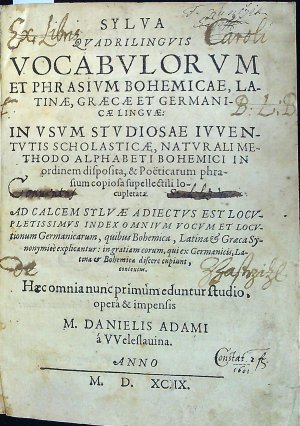 SYLVA
QVADRILINGVIS
VOCABVLORVM
ET PHRASIVM BOHEMICAE, LA-
TINÆ, GRÆCÆ ET GERMANI-
CÆ LINGVÆ:
IN VSVM STVDIOSAE IVVEN-
TVTIS SCHOLASTICÆ, NATVRALI ME-
THODO ALPHABETI BOHEMICI IN
ordinem disposita, & Poëticarum phra-
sium copiosa supellectili lo-
cupletata.
AD CALCEM SYLVÆ ADIECTVS EST LOCV-
PLETISSIMVS INDEX OMNIVM VOCVM ET LOCV-
tionum Germanicarum, quibus Bohemica, Latina & Græca Sy-
nonymiæ explicantur: in gratiam eorum, qui ex Germanicis, La-
tina & Bohemica discere cupiunt,
contextus.
Hæc omnia nunc primùm eduntur studio,
operâ & impensis
M. DANIELIS ADAMI
à VVeleslauina.
ANNO
M. D. XCIIX.
Ex Libris
Caroli
B. L. B.